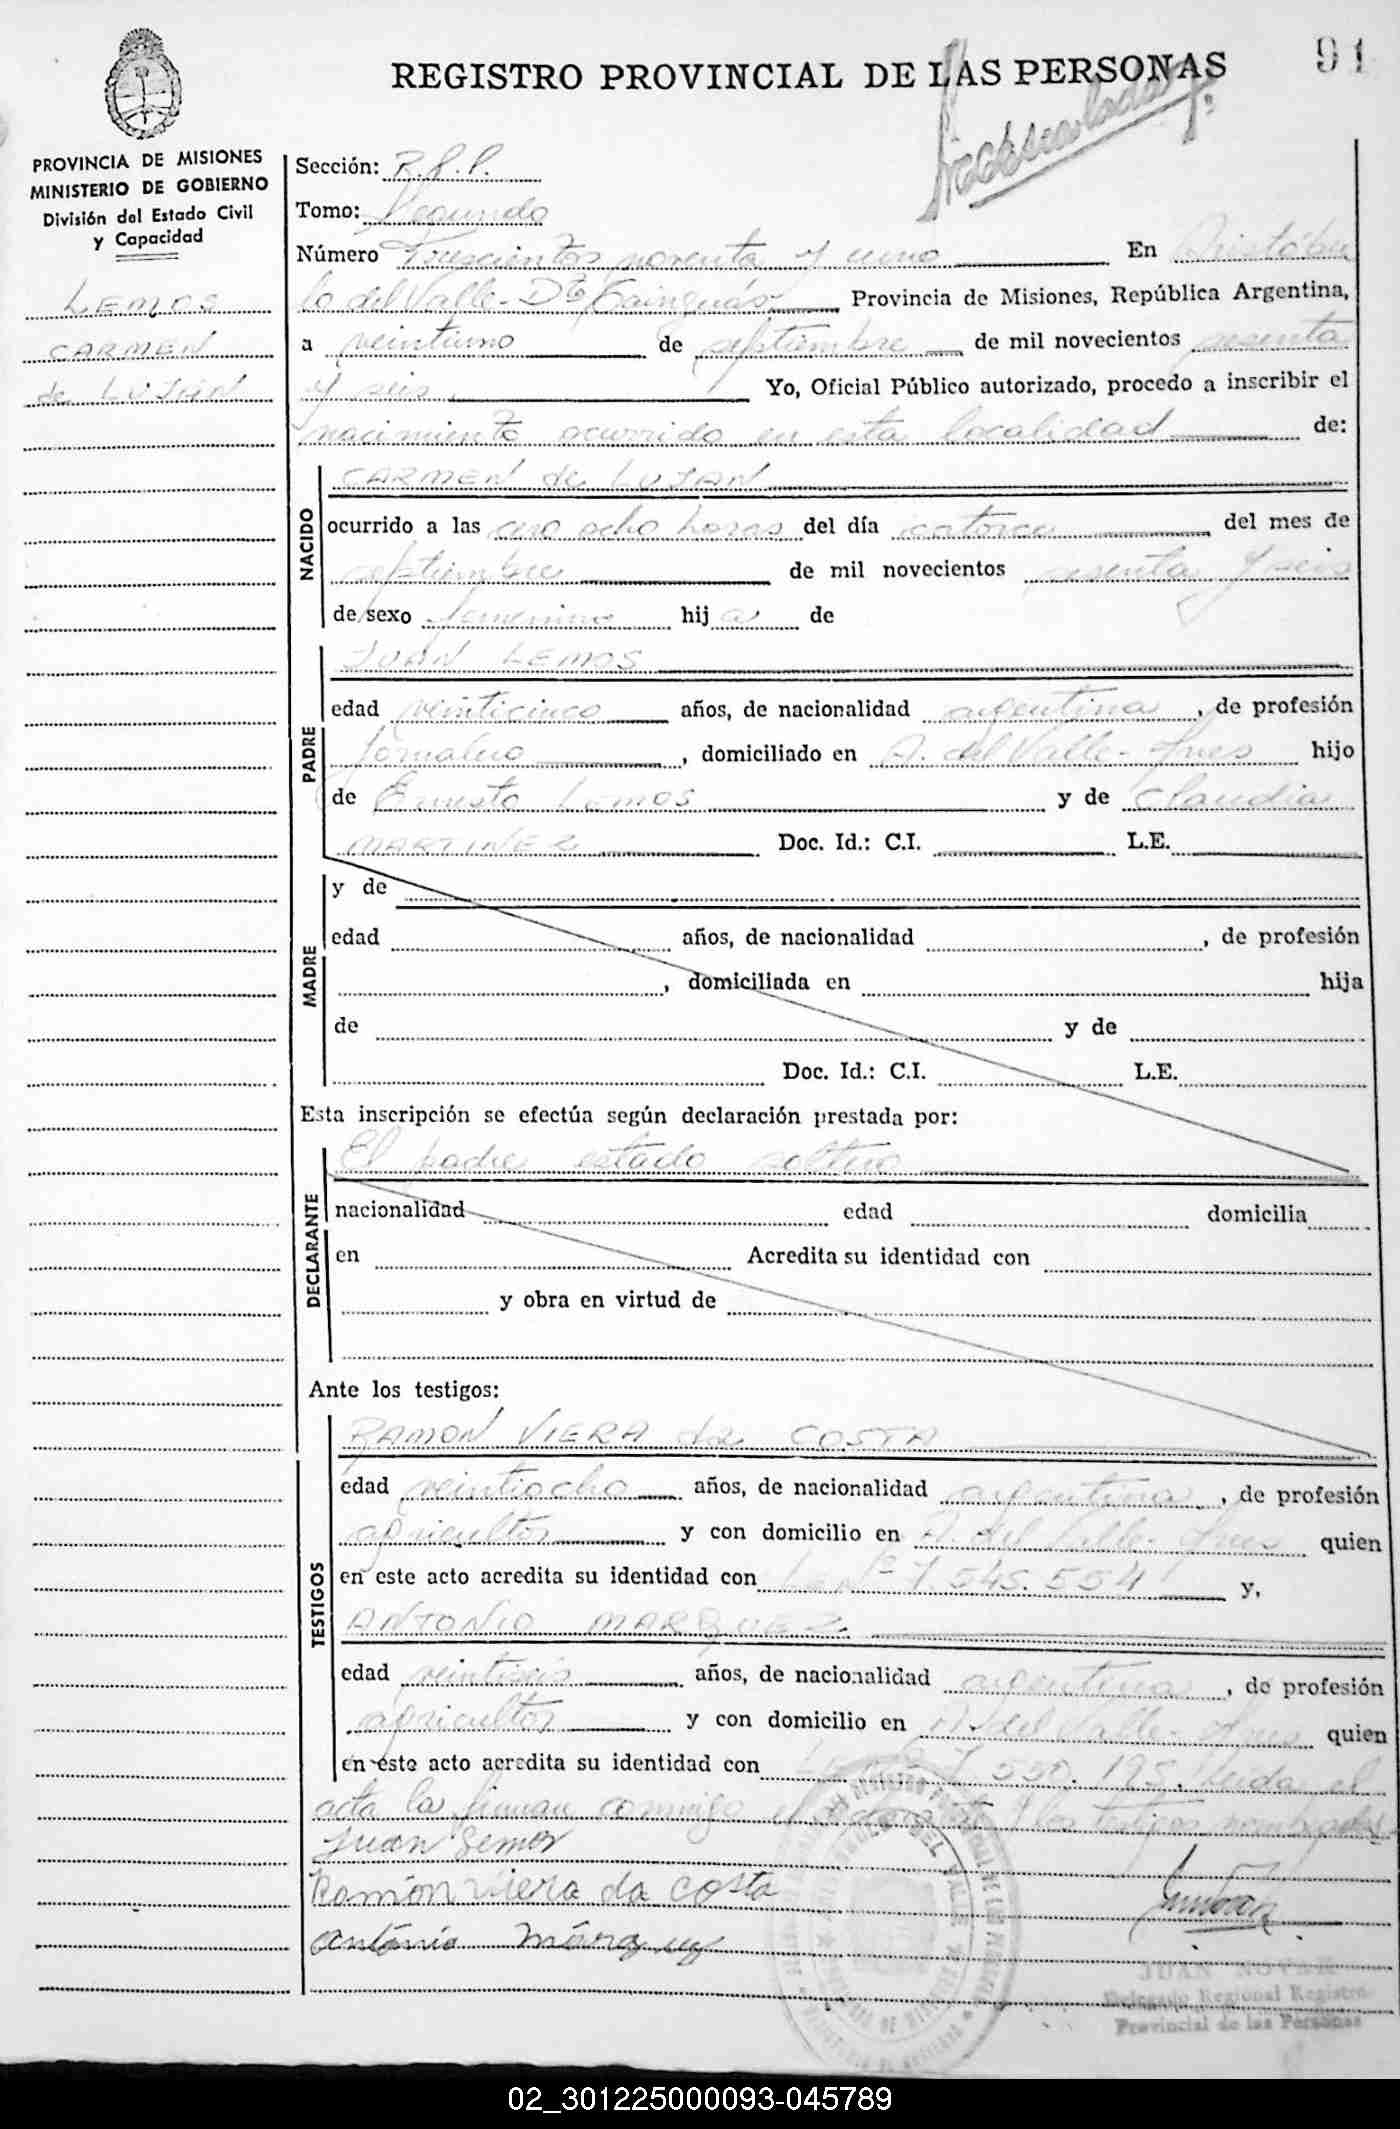 91
REGISTRO PROVINCIAL DE LAS PERSONAS
PROVINCIA DE MISIONES
MINISTERIO DE GOBIERNO
División del Estado Civil
y Capacidad
LEMOS
CARMEN
de LUJAN
Sección: R.P.P.
Tomo: Segundo
Número Trescientos noventa y uno En Aristóbu
lo del Valle - Dto Cainguás Provincia de Misiones, República Argentina,
a veintiuno de septiembre de mil novecientos sesenta
y seis Yo, Oficial Público autorizado, procedo a inscribir el
nacimiento ocurrido en esta localidad de:
NACIDO
CARMEN de LUJAN
ocurrido a las cero ocho horas del día catorce del mes de
septiembre de mil novecientos sesenta y seis
de sexo femenino hija de
PADRE
JUAN LEMOS
edad veinticinco años, de nacionalidad argentina, de profesión
jornalero, domiciliado en A. del Valle - Mnes hijo
de Ernesto Lemos y de Claudia
MARTINEZ Doc. Id.: C.I. L.E.
MADRE
y de
edad años, de nacionalidad , de profesión
, domiciliada en hija
de y de
Doc. Id.: C.I. L.E.
Esta inscripción se efectúa según declaración prestada por:
DECLARANTE
El padre estado soltero
nacionalidad edad domicilia
en Acredita su identidad con
y obra en virtud de
Ante los testigos:
TESTIGOS
RAMON VIERA da COSTA
edad veintiocho años, de nacionalidad argentina, de profesión
agricultor y con domicilio en A. del Valle - Mnes quien
en este acto acredita su identidad con L.E. Nº 7.545.554 y,
ANTONIO MARQUEZ
edad veintiseis años, de nacionalidad argentina, de profesión
agricultor y con domicilio en A. del Valle - Mnes quien
en este acto acredita su identidad con 7.550.195. Leida el
acta la firman conmigo el declarante y los testigos nombrados
Juan Lemos
Ramón Viera da Costa
Antonio Márquez
JUAN
Delegado Regional Registro
Provincial de las Personas
02_301225000093-045789